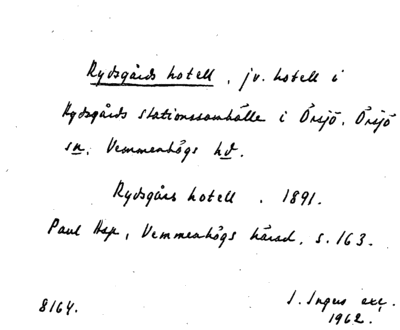 Rydsgårds hotell, jv. hotell i
Rydsgårds stationssamhälle i Örsjö, Örsjö
sn, Vemmenhögs hd.
Rydsgårs hotell. 1891.
Paul Hsp, Vemmenhögs härad, s. 163.
8164.
I. Ingers exc.
1962.